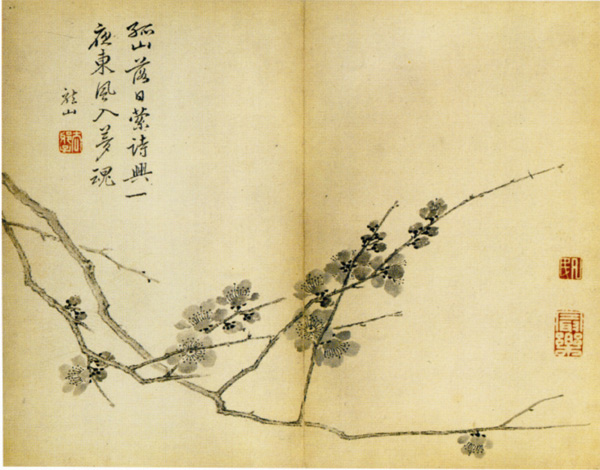 孤山落日縈詩興一
夜東風入夢魂
山